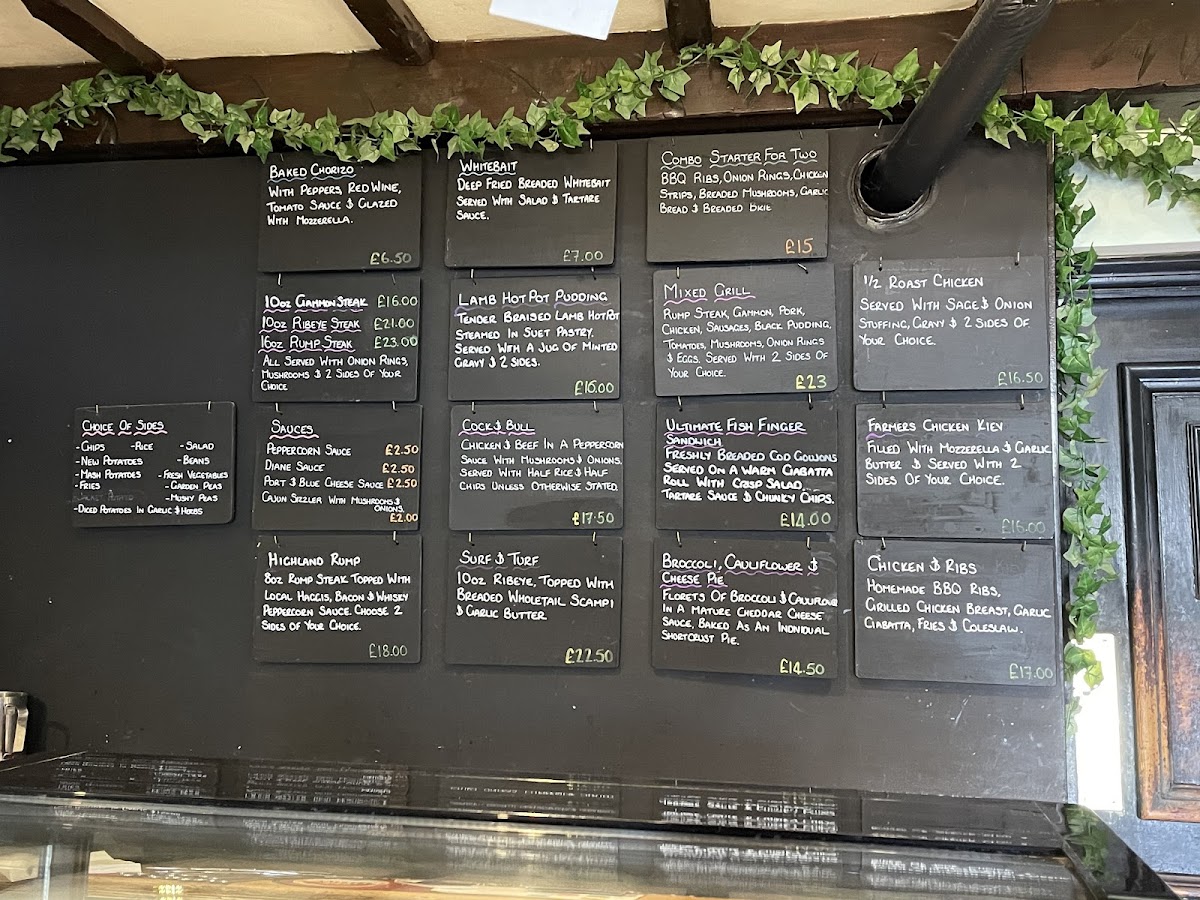 Baked Chorizo
With Peppers, Red Wine,
Tomato Sauce & Glazed
With Mozzerella.
£6.50
Whitebait
Deep Fried Breaded Whitebait
Served With Salad & Tartare
Sauce.
£7.00
Combo Starter For Two
BBQ Ribs, Onion Rings, Chicken
Strips, Breaded Mushrooms, Garlic
Bread & Breaded Brie
£15
10oz Gammon Steak £16.00
10oz Ribeye Steak £21.00
16oz Rump Steak £23.00
All Served With Onion Rings,
Mushrooms & 2 Sides Of Your
Choice
Lamb Hot Pot Pudding
Tender Braised Lamb Hotpot
Steamed In Suet Pastry.
Served With A Jug Of Minted
Gravy & 2 Sides.
£16.00
Mixed Grill
Rump Steak, Gammon, Pork,
Chicken, Sausages, Black Pudding,
Tomatoes, Mushrooms, Onion Rings
& Eggs. Served With 2 Sides Of
Your Choice.
£23
1/2 Roast Chicken
Served With Sage & Onion
Stuffing, Gravy & 2 Sides Of
Your Choice.
£16.50
Choice Of Sides
-Chips -Rice -Salad
-New Potatoes -Beans
-Mash Potatoes -Fresh Vegetables
-Fries -Garden Peas
-Jacket Potato -Mushy Peas
-Diced Potatoes In Garlic & Herbs
Sauces
Peppercorn Sauce £2.50
Diane Sauce £2.50
Port & Blue Cheese Sauce £2.50
Cajun Sizzler With Mushrooms &
Onions.
£2.00
Cock & Bull
Chicken & Beef In A Peppercorn
Sauce With Mushrooms & Onions.
Served With Half Rice & Half
Chips Unless Otherwise Stated
£17.50
Ultimate Fish Finger
Sandwich
Freshly Breaded Cod Goujons
Served On A Warm Ciabatta
Roll With Crisp Salad,
Tartare Sauce & Chunky Chips.
£14.00
Farmers Chicken Kiev
Filled With Mozzerella & Garlic
Butter & Served With 2
Sides Of Your Choice.
£16.00
Highland Rump
8oz Rump Steak Topped With
Local Haggis, Bacon & Whisky
Peppercorn Sauce. Choose 2
Sides Of Your Choice.
£18.00
Surf & Turf
10oz Ribeye, Topped With
Breaded Wholetail Scampi
& Garlic Butter
£22.50
Broccoli, Cauliflower &
Cheese Pie
Florets Of Broccoli & Cauliflower
In A Mature Cheddar Cheese
Sauce, Baked As An Individual
Shortcrust Pie.
£14.50
Chicken & Ribs
Homemade BBQ Ribs,
Grilled Chicken Breast, Garlic
Ciabatta, Fries & Coleslaw.
£17.00